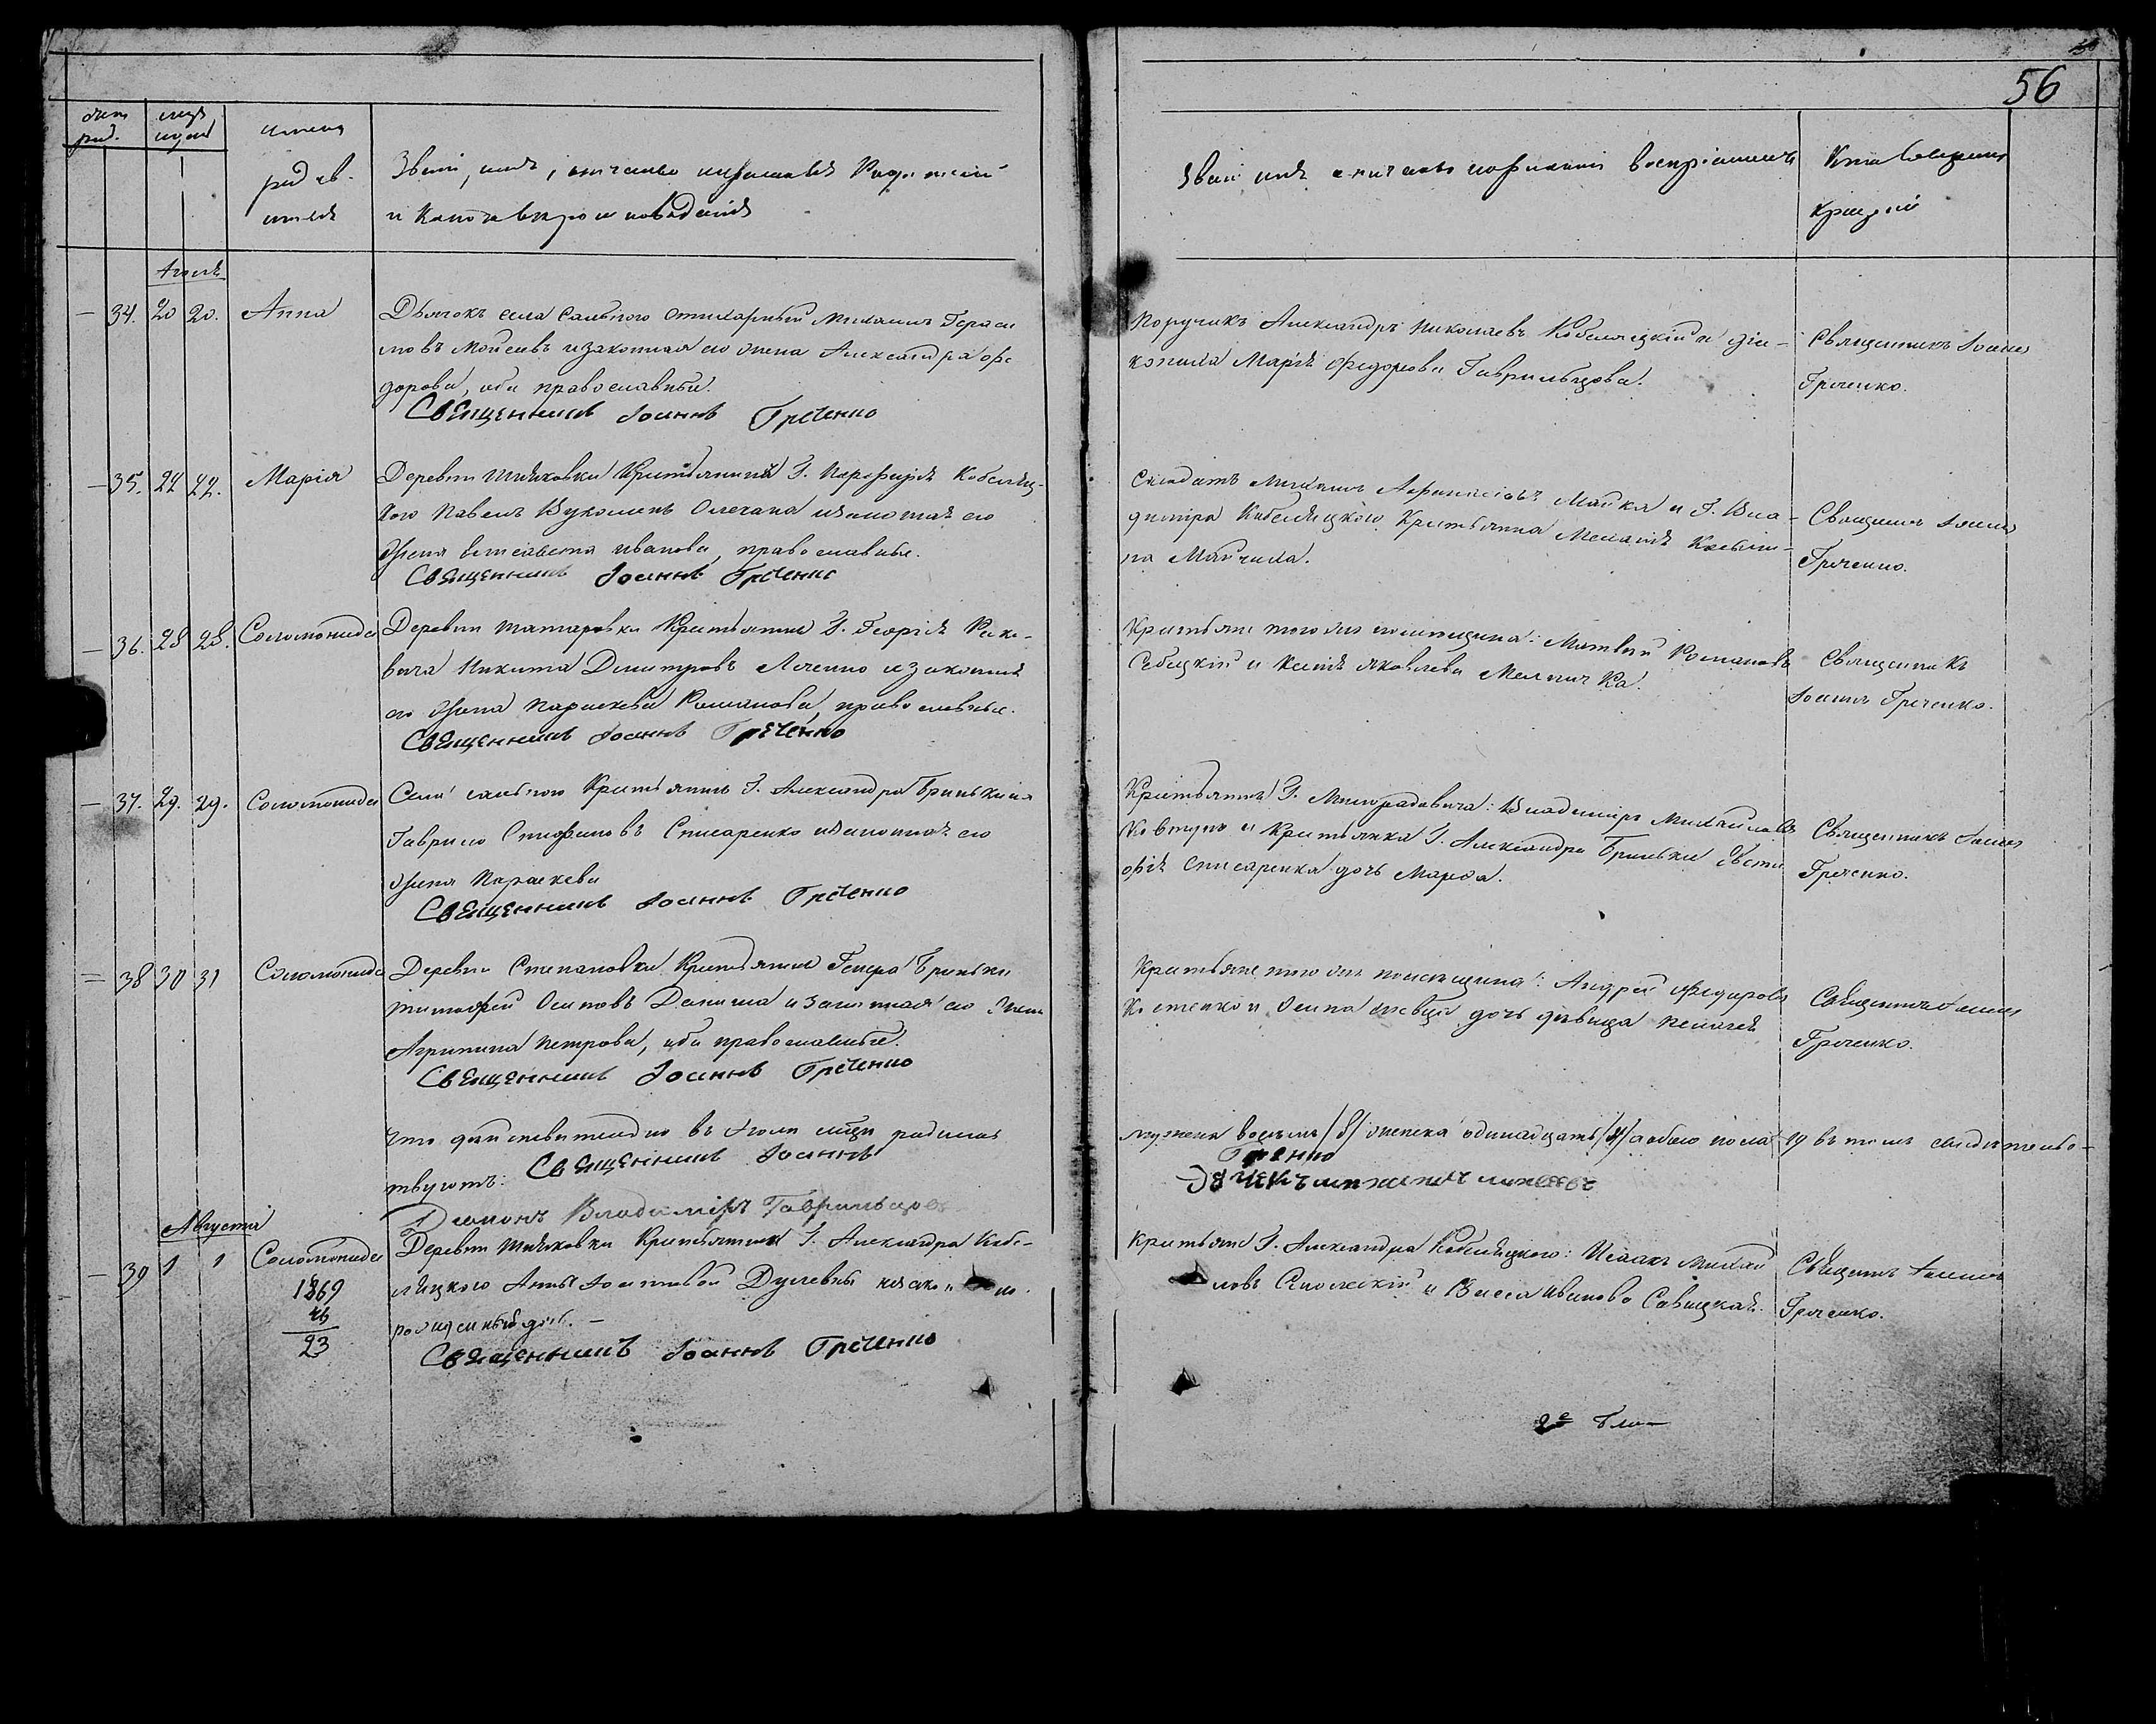 56
счет род.
имена
родив
Званіе, имя, отчество и фамилія Родителей
и какого вѣроисповѣданія
Званіе имя отчество и фамилія воспріемниковъ
Кто совершалъ
крещеніе
34. 20 20. Анна
Дьячокъ села Сального стихарный Михаилъ Гераси
мовъ Моисеевъ и законная его жена Александра Фе
дорова, оба православные.
Священникъ Іоаннъ Греченко
Поручикъ Александръ Николаевъ Кобеляцкій и діа-
конша Марія Федорова Гаврильцова.
Священникъ Іоаннъ
Греченко.
35. 22 22. Марія
Деревни Шиляковки Крестьянинъ Г. Порфирія Кобеляц-
кого Павелъ и законная его
жена Елисавета Иванова, православные.
Священникъ Іоаннъ Греченко
Солдатъ Михаилъ Афанасіевъ Малка и Г. Вла-
диміра Кобеляцкого Крестьянка Меланія
Священникъ Іоаннъ
Греченко.
36. 28 28. Соломонида
Деревни Татаровки Крестьянинъ Г. Георгія Рако-
вича Никита Димитровъ Личенко и законная
его жена Параскева Романова, православные.
Священникъ Іоаннъ Греченко
Крестьяне того же помещика: Матвей Романовъ
и Ксенія Яковлева Мельничка.
Священникъ
Іоаннъ Греченко.
37. 29. 29. Соломонида
Села Сального Крестьянинъ Г. Александра Бриньки
Гаврило Стефановъ Слисаренко и законная его
жена Параскева
Священникъ Іоаннъ Греченко
Крестьянинъ Г. Милорадовича: Владиміръ Михайловъ
Ковтунъ и Крестьянка Г. Александра Бриньки Евста
фія Слисаренка дочь Марфа.
Священникъ Іоаннъ
Греченко.
38 30 31 Соломонида
Деревни Степановки Крестьянинъ Генера Бриньки
Тимофей Осиповъ Данила и законная его жена
Агрипина Петрова, оба православные.
Священникъ Іоаннъ Греченко
Крестьяне того же помещика: Андрей Федоровъ
Костенко и Осипа дочь девица Пелагея
Священникъ Іоаннъ
Греченко.
Что действительно въ Іюле месяце родилось
мужеска восемь /8/ женска одинадцать /11/ а обоего пола 19 въ томъ свидетельс-
твуютъ: Священникъ Іоаннъ Греченко
Діаконъ Владиміръ Гаврильцовъ
Дячекъ Михаилъ Моисеевъ
Августа
39 1 1 Соломонида
Деревни Шиляковки Крестьянки Г. Александра Кобе-
ляцкого Анны незаконно
рожденная дочь. —
Священникъ Іоаннъ Греченко
Крестьяне Г. Александра Кобеляцкого: Исаакъ Михай
ловъ и Васса Иванова Савицкая.
Священникъ Іоаннъ
Греченко.
1869
46
23